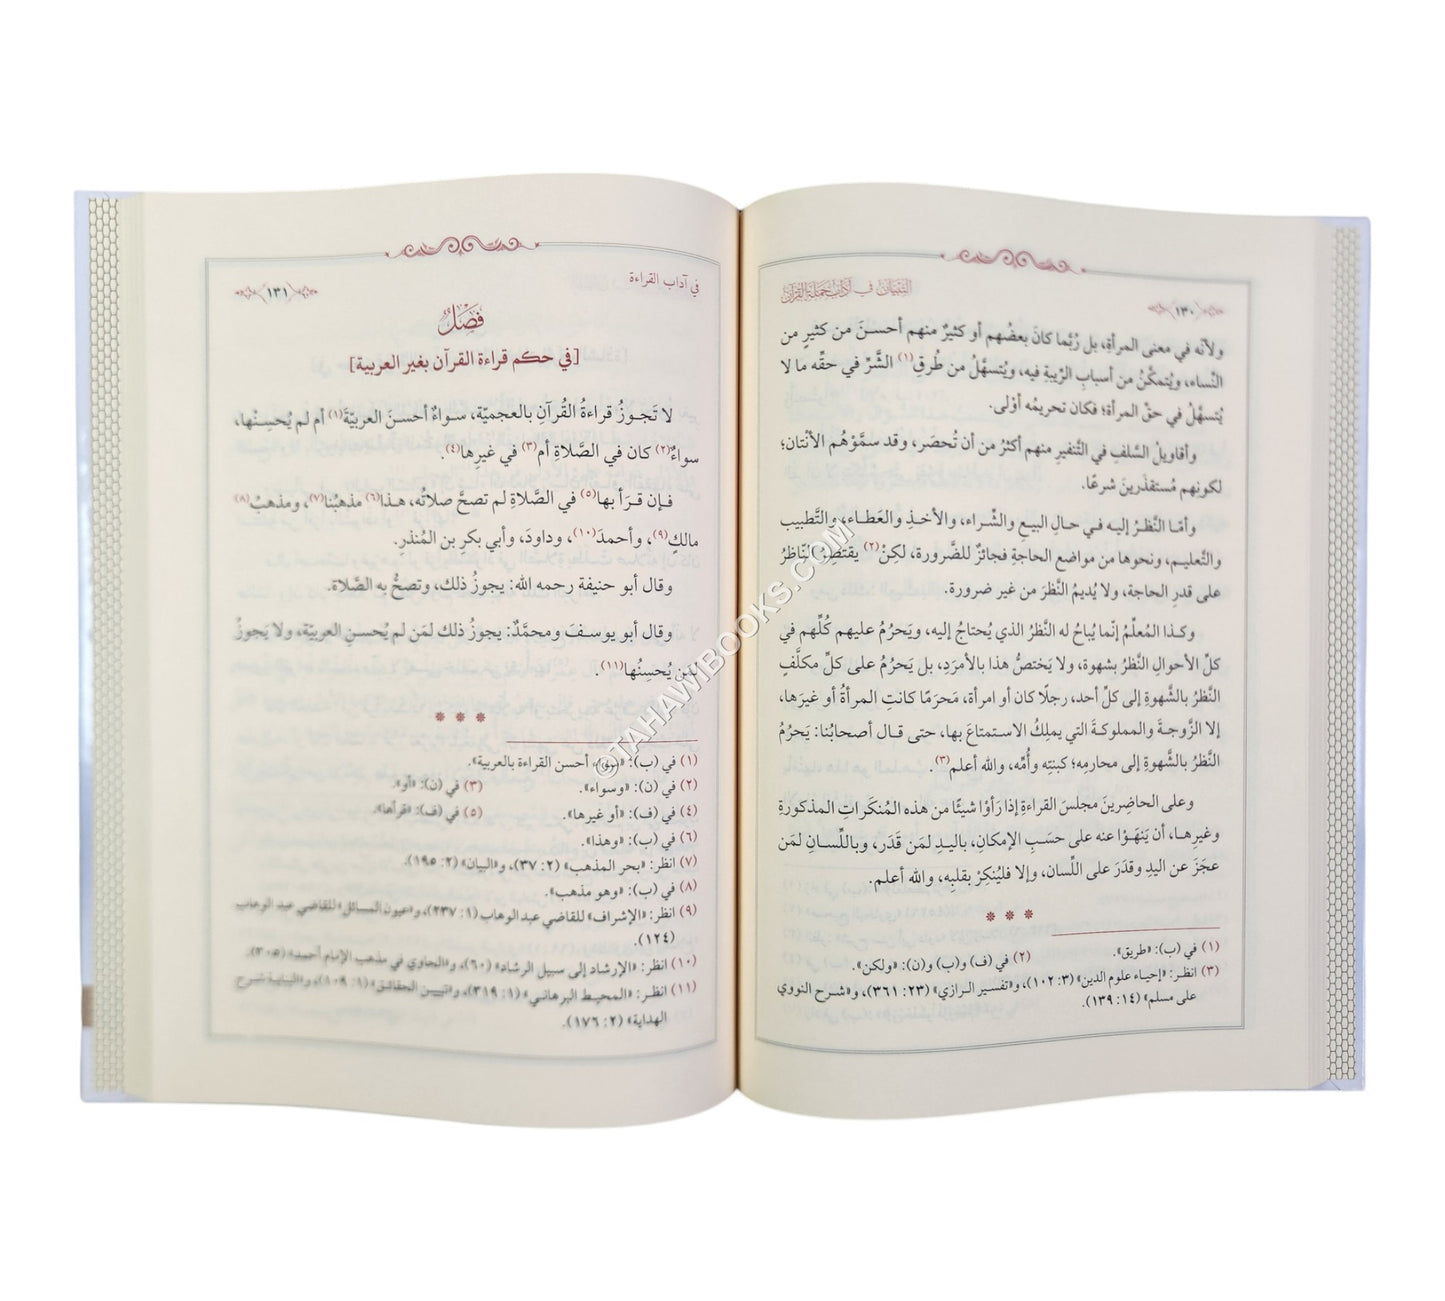 التبيان في آداب حملة القرآن
١٣٠
ولأنّه في معنى المرأةِ، بل رُبَّما كانَ بعضُهم أو كثيرٌ منهم أحسـنَ من كثيرٍ من
النِّساء، ويُتمكَّنُ من أسبابِ الرِّيبةِ فيه، ويُتسهَّلُ من طُرقِ(١) الشَّرِّ في حقِّه ما لا
يُتسهَّلُ في حقِّ المرأة؛ فكان تحريمُه أَوْلى.
وأقاويلُ السَّلفِ في التَّنفيرِ منهم أكثرُ من أن تُحصَر، وقد سمَّوْهُم الأنْتان؛
لكونهم مُستقذَرينَ شرعًا.
وأمّـا النَّظـرُ إليـه فـي حـالِ البيـعِ والشِّـراء، والأخـذِ والعَطـاء، والتَّطبيبِ
والتَّعليـم، ونحوها من مواضعِ الحاجةِ فجائزٌ للضَّرورة، لكِنْ(٢) يقتصِرُ النّاظرُ
على قدرِ الحاجة، ولا يُديمُ النَّظرَ من غير ضرورة.
وكـذا المُعلِّـمُ إنّما يُباحُ له النَّظرُ الذي يُحتاجُ إليه، ويَحرُمُ عليهم كُلِّهم في
كلِّ الأحوالِ النَّظرُ بشهوة، ولا يَختصُّ هذا بالأمرَدِ، بل يَحرُمُ على كلِّ مكلَّفٍ
النَّظرُ بالشَّهوةِ إلى كلِّ أحد، رجلًا كان أو امرأة، مَحرَمًا كانتِ المرأةُ أو غيرَها،
إلا الزَّوجـةَ والمملوكـةَ التي يملِكُ الاسـتمتاعَ بها، حتى قـال أصحابُنا: يَحرُمُ
النَّظرُ بالشَّهوةِ إلى محارمِه؛ كبنتِه وأُمِّه، والله أعلم(٣).
وعلى الحاضِرينَ مجلسَ القراءةِ إذا رَأَوْا شيئًا من هذه المُنكَراتِ المذكورةِ
وغيرِهـا، أن يَنهَـوْا عنه على حسَبِ الإمكانِ، باليـدِ لمَن قَدَر، وباللِّسـانِ لمَن
عجَزَ عن اليدِ وقدَرَ على اللِّسان، وإلا فليُنكِرْ بقلبِه، والله أعلم.
* * *
(١) في (ب): «طريق».
(٢) في (ف) و(ب) و(ن): «ولكن».
(٣) انظر: «إحياء علوم الدين» (٣: ١٠٢)، و«تفسير الرازي» (٢٣: ٣٦١)، و«شرح النووي
على مسلم» (١٤: ١٣٩).
في آداب القراءة
١٣١
فَصْلٌ
[في حكم قراءة القرآن بغير العربية]
لا تَجـوزُ قراءةُ القُرآنِ بالعجميّة، سـواءٌ أحسنَ العربيّةَ(١) أم لم يُحسِنْها،
سواءٌ(٢) كان في الصَّلاةِ أم(٣) في غيرِها(٤).
فـإن قـرَأ بها(٥) في الصَّلاةِ لم تصحَّ صلاتُه، هـذا(٦) مذهبُنا(٧)، ومذهبُ(٨)
مالكٍ(٩)، وأحمدَ(١٠)، وداودَ، وأبي بكرِ بن المُنذرِ.
وقال أبو حنيفة رحمه الله: يجوزُ ذلك، وتصحُّ به الصَّلاة.
وقال أبو يوسـفَ ومحمَّدٌ: يجوزُ ذلك لمَن لم يُحسنِ العربيّة، ولا يَجوزُ
لمَن يُحسِنُها(١١).
* * *
(١) في (ب): «سواء أحسن القراءة بالعربية».
(٢) في (ن): «وسواء».
(٣) في (ن): «أو».
(٤) في (ف): «أو غيرها».
(٥) في (ف): «قرأها».
(٦) في (ب): «وهذا».
(٧) انظر: «بحر المذهب» (٢: ٣٧)، و«البيان» (٢: ١٩٥).
(٨) في (ب): «وهو مذهب».
(٩) انظر: «الإشراف» للقاضي عبد الوهاب (١: ٢٣٧)، و«عيون المسائل» للقاضي عبد الوهاب
(١٢٤).
(١٠) انظر: «الإرشاد إلى سبيل الرشاد» (٦٠)، و«الحاوي في مذهب الإمام أحمد» (٣٠٥).
(١١) انظـر: «المحيـط البرهانـي» (١: ٣١٩)، و«تبيين الحقائـق» (١: ١٠٩)، و«البناية شـرح
الهداية» (٢: ١٧٦).
©TAHAWIBOOKS.COM